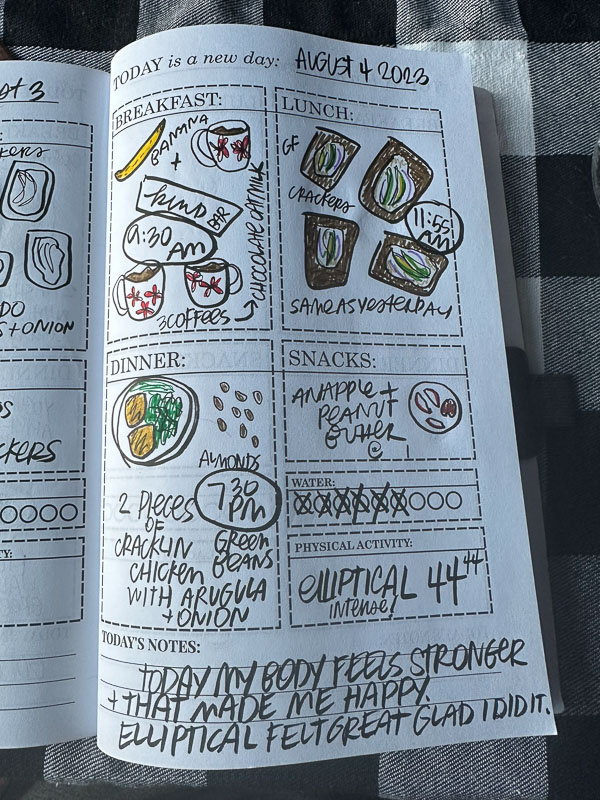 TODAY is a new day: AUGUST 4 2023
BREAKFAST:
BANANA
+
kind
BAR
9:30
AM
3 COFFEES
CHOCOLATE OATMILK
LUNCH:
GF
CRACKERS
11:55
AM
SAME AS YESTERDAY
DINNER:
ALMONDS
7 30
PM
2 PIECES
OF
CRACKLIN
CHICKEN
GREEN
BEANS
WITH ARUGULA
+ ONION
SNACKS:
AN APPLE +
PEANUT
BUTTER
@ 1
WATER:
PHYSICAL ACTIVITY:
ELLIPTICAL 44 44
INTENSE!
TODAY'S NOTES:
TODAY MY BODY FEELS STRONGER
+ THAT MADE ME HAPPY.
ELLIPTICAL FELT GREAT GLAD I DID IT.
3
+ ONION